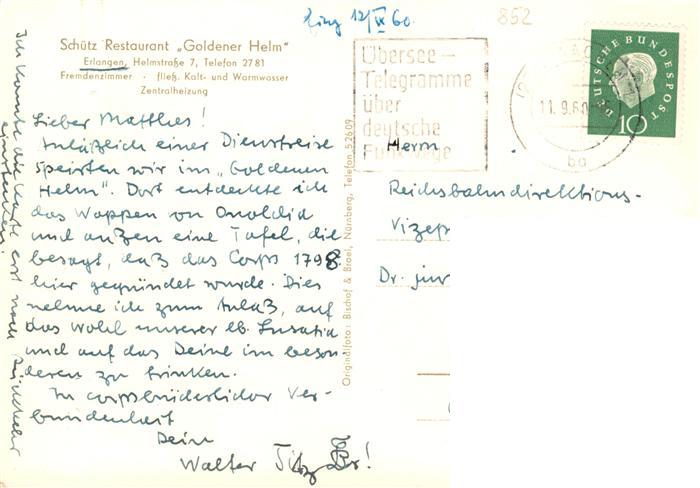 Eing 12/IX 60.
852
Schütz Restaurant „Goldener Helm"
Erlangen, Helmstraße 7, Telefon 2781
Fremdenzimmer · fließ. Kalt- und Warmwasser
Zentralheizung
Lieber Matthies!
Anläßlich einer Dienstreise
speisten wir im „Goldenen
Helm". Dort entdeckte ich
das Wappen von Onoldia
und außen eine Tafel, die
besagt, daß das Corps 1798
hier gegründet wurde. Dies
nehme ich zum Anlaß, auf
das Wohl unserer lb. Lusatia
und auf das Deine im beson
deren zu trinken.
In corpsbrüderlicher Ver-
bundenheit
Dein
Walter
Ich konnte die Karte erst nach Rückkehr
einstecken.
Originalfoto: Bischof & Broel, Nürnberg, Telefon 52609
Übersee-
Telegramme
über
deutsche
11.9.60
ba
DEUTSCHE BUNDESPOST
10
Herrn
Reichsbahndirektions-
Vizep
Dr. jur